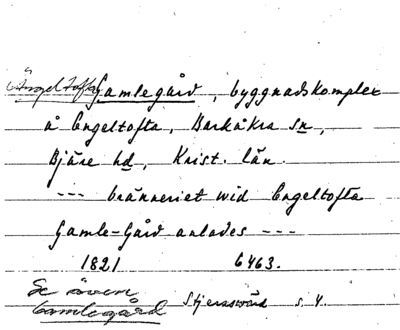 Ängeltofta Gamlegård, byggnadskomplex
å Engeltofta, Barkåkra sn,
Bjäre hd, Krist. län.
--- bränneriet wid Engeltofta
Gamle-Gård anlades ---
1821 6463.
Se även
Gamlegård Stjernsvärd s. 4.